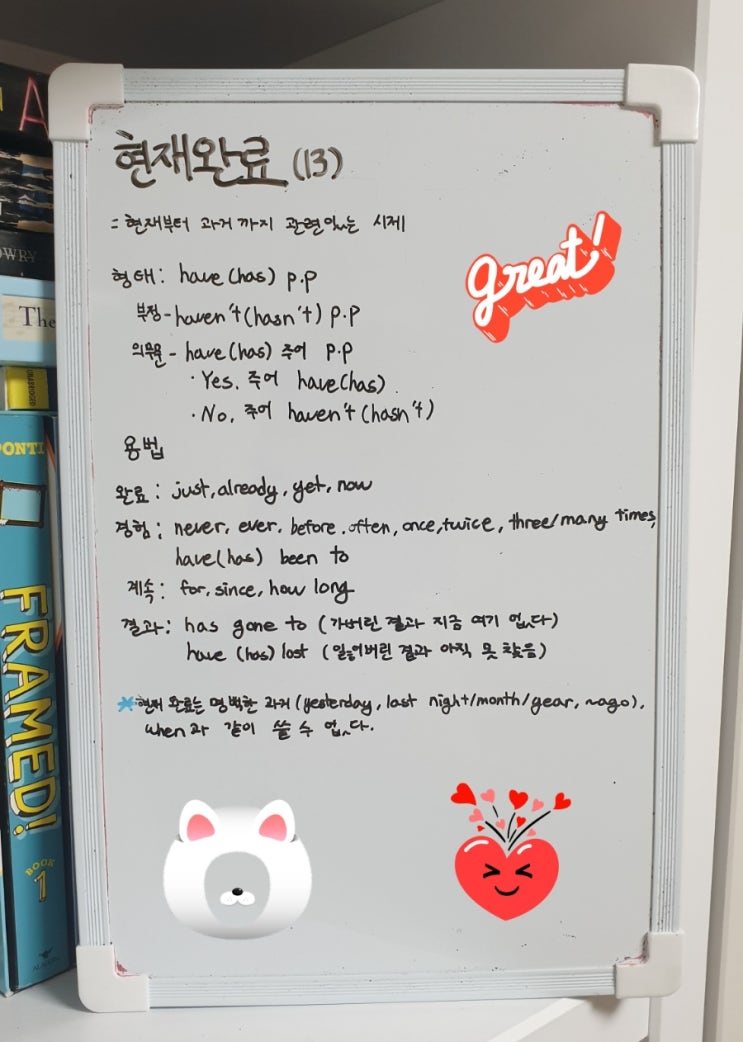 A
OWRY
The
UNABRIDGED
PONTI
FRAMED!
BOOK
1
현재완료 (13)
= 현재부터 과거까지 관련있는 시제
great!
형태: have (has) p.p
부정 - haven't (hasn't) p.p
의문문 - have (has) 주어 p.p
· Yes, 주어 have (has).
· No, 주어 haven't (hasn't)
용법
완료: just, already, yet, now
경험: never, ever, before, often, once, twice, three/many times,
have (has) been to
계속: for, since, how long
결과: has gone to (가버린 결과 지금 여기 없다)
have (has) lost (잃어버린 결과 아직 못 찾음)
*현재 완료는 명백한 과거 (yesterday, last night/month/year, ~ago),
when과 같이 쓸 수 없다.